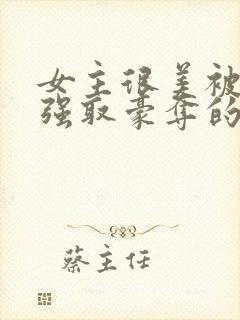 女主很美被
强取豪夺的
蔡主任